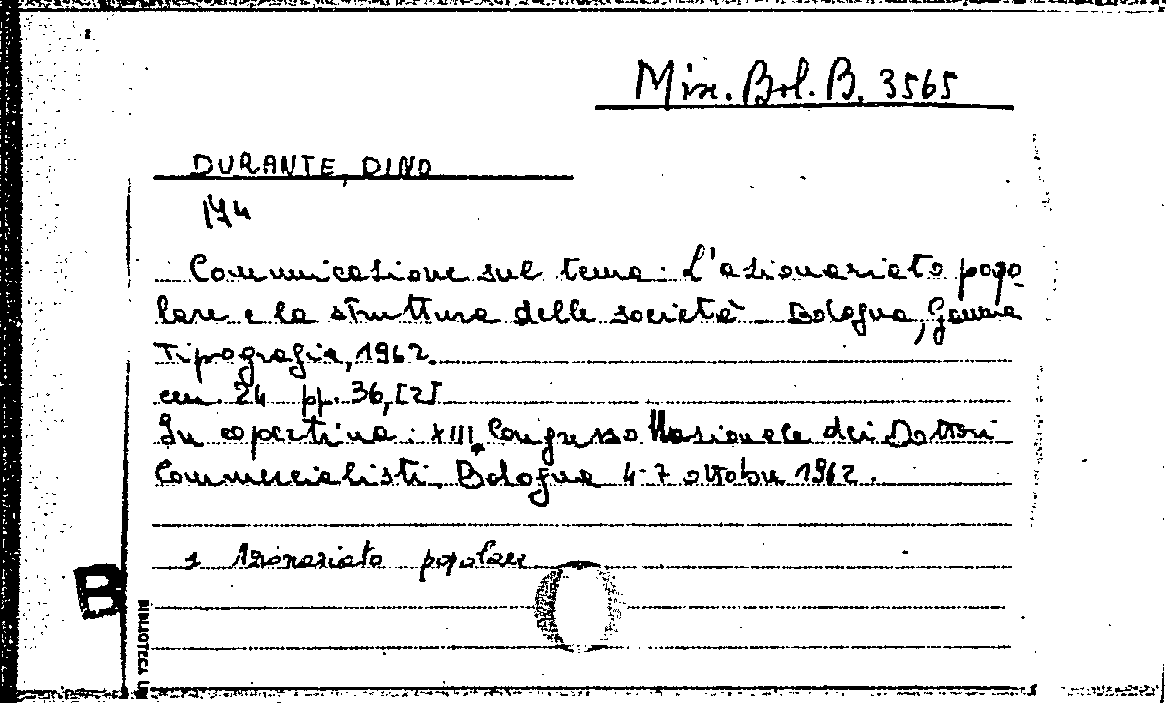 Misc. Bol. B. 3565
DURANTE, DINO
174
Comunicazione sul tema: L'azionariato popo-
lare e la struttura delle società Bologna,
Tipografia, 1962.
cm. 24 pp. 36, [2]
In copertina: XIII, Congresso Nazionale dei Dottori
Commercialisti. Bologna 4-7 ottobre 1962.
1 Azionariato popolare
B
BIBLIOTECA